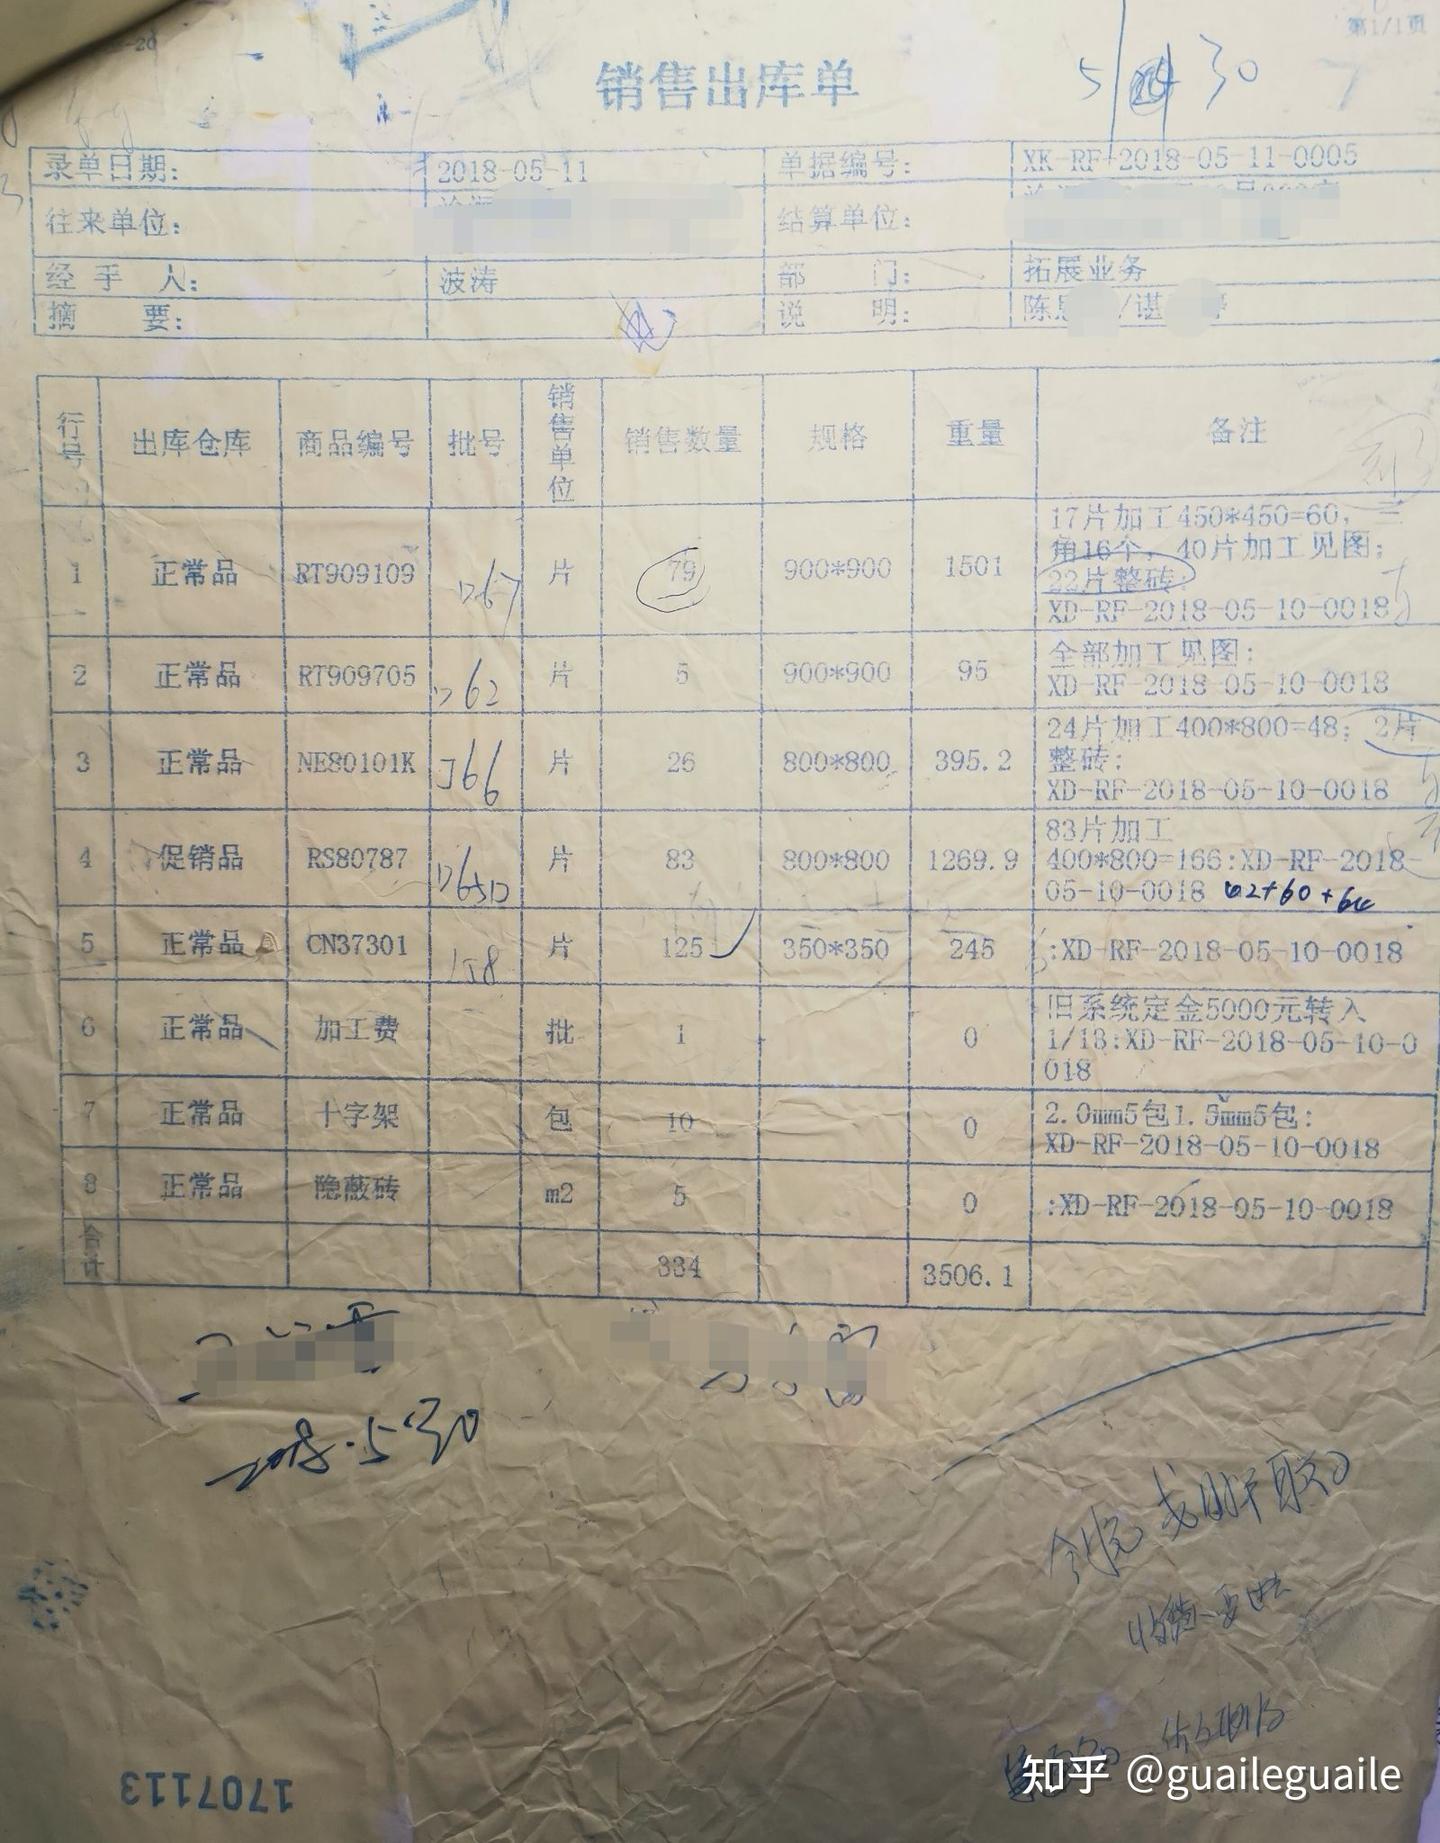 第1/1页
销售出库单
5 30
录单日期： 2018-05-11 单据编号： XK-RF-2018-05-11-0005
往来单位： 结算单位：
经手人： 波涛 部门： 拓展业务
摘要： 说明： 陈 /谌
行号 出库仓库 商品编号 批号 销售单位 销售数量 规格 重量 备注
1 正常品 RT909109 片 79 900*900 1501 17片加工450*450=60，三
角16个，40片加工见图；
22片整砖：
XD-RF-2018-05-10-0018
2 正常品 RT909705 片 5 900*900 95 全部加工见图：
XD-RF-2018-05-10-0018
3 正常品 NE80101K J66 片 26 800*800 395.2 24片加工400*800=48；2片
整砖：
XD-RF-2018-05-10-0018
4 促销品 RS80787 片 83 800*800 1269.9 83片加工
400*800=166:XD-RF-2018-
05-10-0018 62+60+
5 正常品 CN37301 158 片 125 350*350 245 :XD-RF-2018-05-10-0018
6 正常品 加工费 批 1 0 旧系统定金5000元转入
1/13:XD-RF-2018-05-10-0
018
7 正常品 十字架 包 10 0 2.0mm5包1.5mm5包：
XD-RF-2018-05-10-0018
8 正常品 隐蔽砖 m2 5 0 :XD-RF-2018-05-10-0018
合计 334 3506.1
2018.5.30
1707113
知乎 @guaileguaile